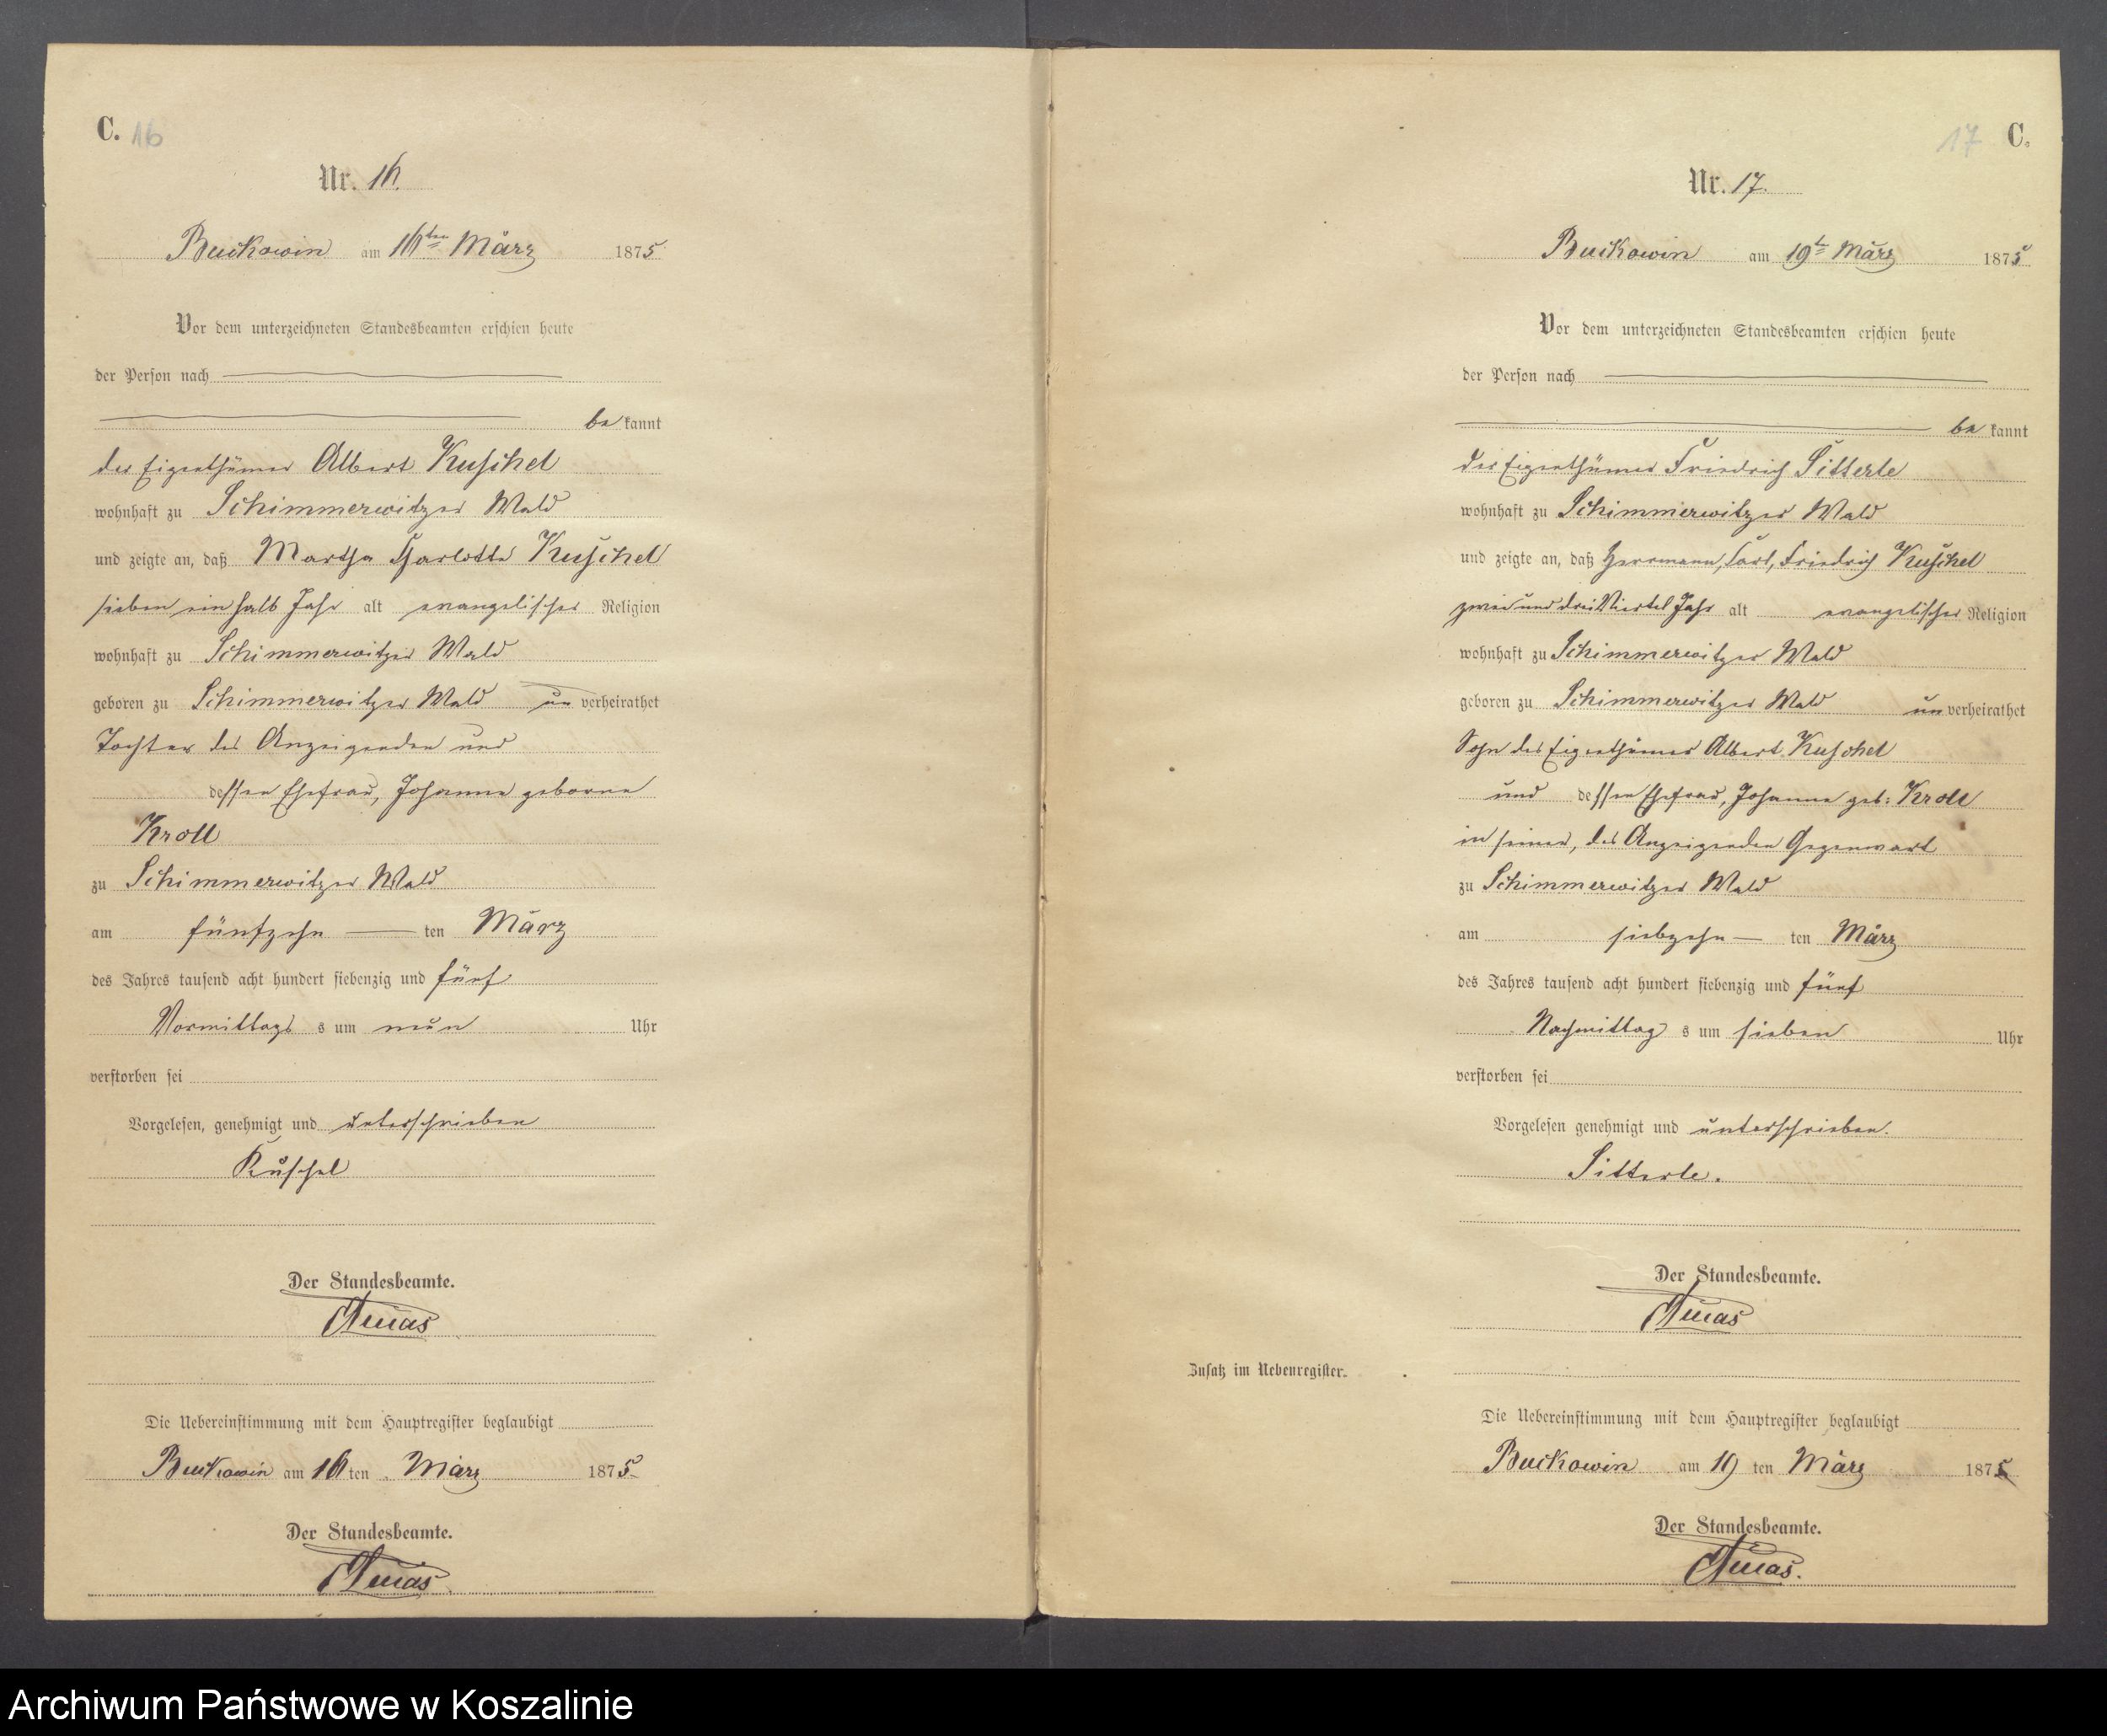 C. 16
Nr. 16.
Buckowin am 16ten März 1875
Vor dem unterzeichneten Standesbeamten erschien heute
der Person nach
be kannt
der Eigenthümer Albert Kuschel
wohnhaft zu Schimmerwitzer Wald
und zeigte an, daß Martha Charlotte Kuschel
sieben ein halb Jahr alt evangelischer Religion
wohnhaft zu Schimmerwitzer Wald
geboren zu Schimmerwitzer Wald un verheirathet
Tochter des Anzeigenden und
dessen Ehefrau, Johanna geborne
Kroll
zu Schimmerwitzer Wald
am fünfzehn ten März
des Jahres tausend acht hundert siebenzig und fünf
Vormittags s um neun Uhr
verstorben sei
Vorgelesen, genehmigt und unterschrieben
Kuschel
Der Standesbeamte.
Die Uebereinstimmung mit dem Hauptregister beglaubigt
Buckowin am 16 ten März 1875.
Der Standesbeamte.
17 C.
Nr. 17.
Buckowin am 19t März 1875
Vor dem unterzeichneten Standesbeamten erschien heute
der Person nach
be kannt
der Eigenthümer Friedrich Sitterle
wohnhaft zu Schimmerwitzer Wald
und zeigte an, daß Herrmann, Carl, Friedrich Kuschel
zwei und drei Viertel Jahr alt evangelischer Religion
wohnhaft zu Schimmerwitzer Wald
geboren zu Schimmerwitzer Wald un verheirathet
Sohn des Eigenthümer Albert Kuschel
und dessen Ehefrau, Johanna geb: Kroll
in seiner, des Anzeigenden Gegenwart
zu Schimmerwitzer Wald
am siebzehn ten März
des Jahres tausend acht hundert siebenzig und fünf
Nachmittag s um sieben Uhr
verstorben sei
Vorgelesen genehmigt und unterschrieben.
Sitterle.
Der Standesbeamte.
Zusatz im Nebenregister.
Die Uebereinstimmung mit dem Hauptregister beglaubigt
Buckowin am 19 ten März 1875
Der Standesbeamte.
Archiwum Państwowe w Koszalinie